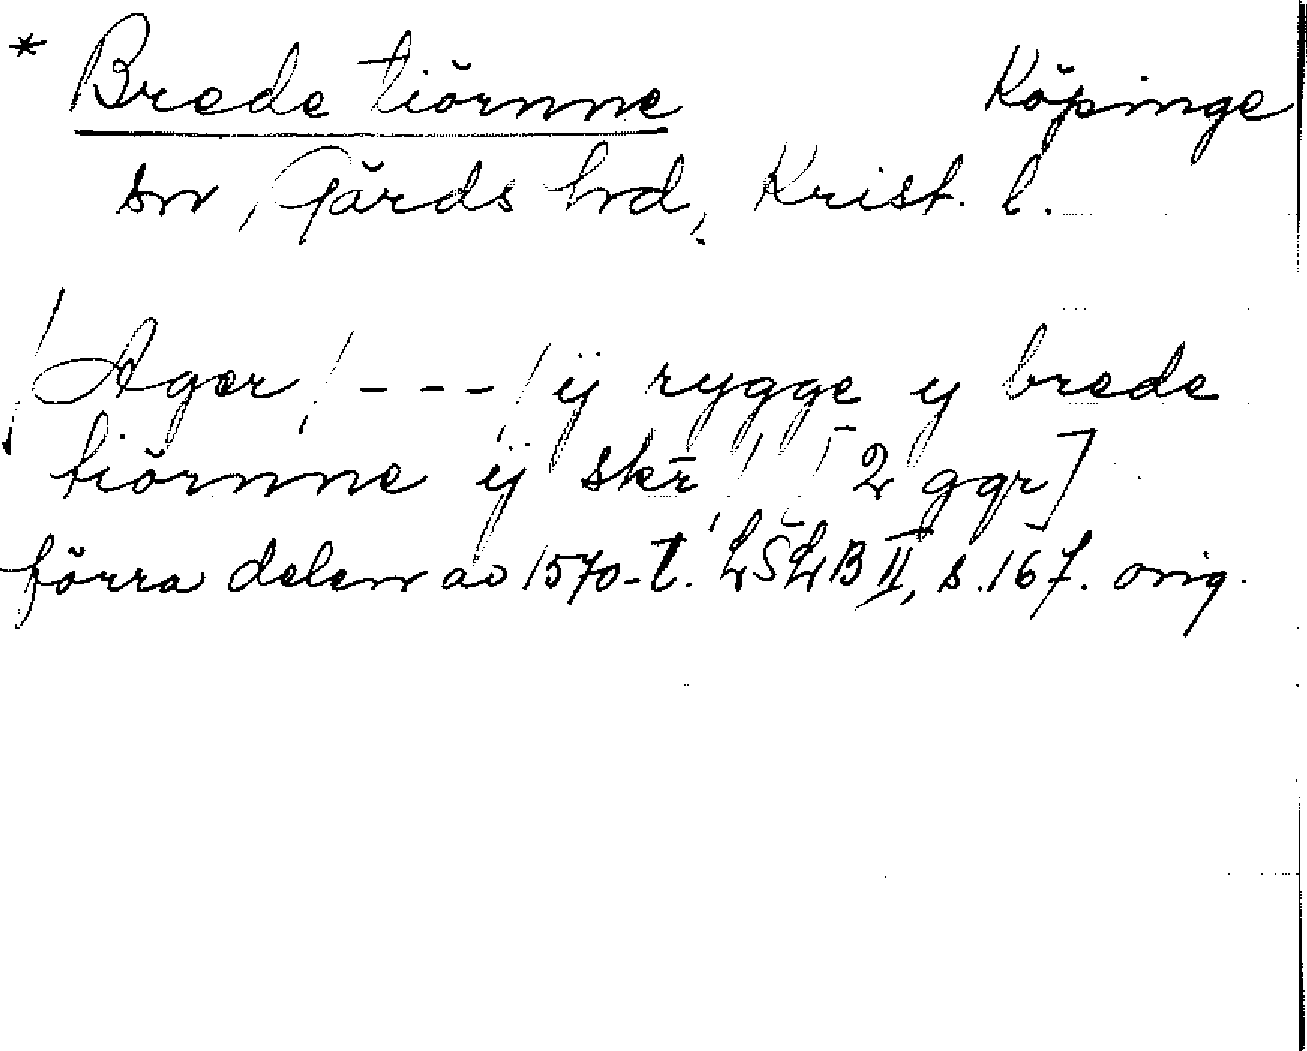 * Brede tiörnne Köpinge
sn, Gärds hd, Krist. l.
/Ager/---/ÿ rygge y brede
tiörnne ÿ skr̄/ [2 ggr]
förra delen av 1570-t. LSLB II, s. 167. orig.